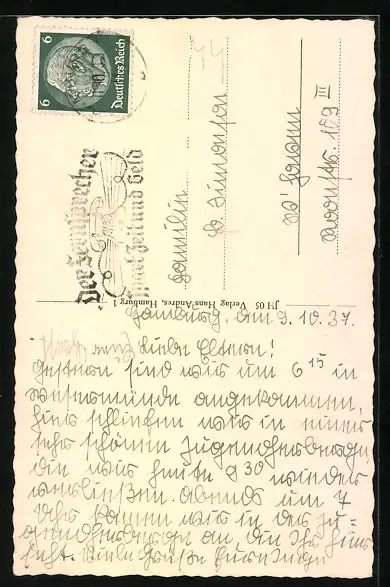 6
6
Deutsches Reich
Der Fernsprecher
spart Zeit und Geld
Familie
D. Simonson
III
JH 05 Verlag Hans Andres, Hamburg 1
Hamburg, den 9. 10. 37.
Liebe Eltern!
Gestern sind wir um 6 15 in
Wesermünde angekommen,
hier schliefen wir in einer
sehr schönen Jugendherberge,
die wir heute 9 30 wieder
verließen. Abends um 7
Uhr kamen wir in der Ju-
gendherberge an, die Ihr hier
seht. Viele Grüße Eure Inge